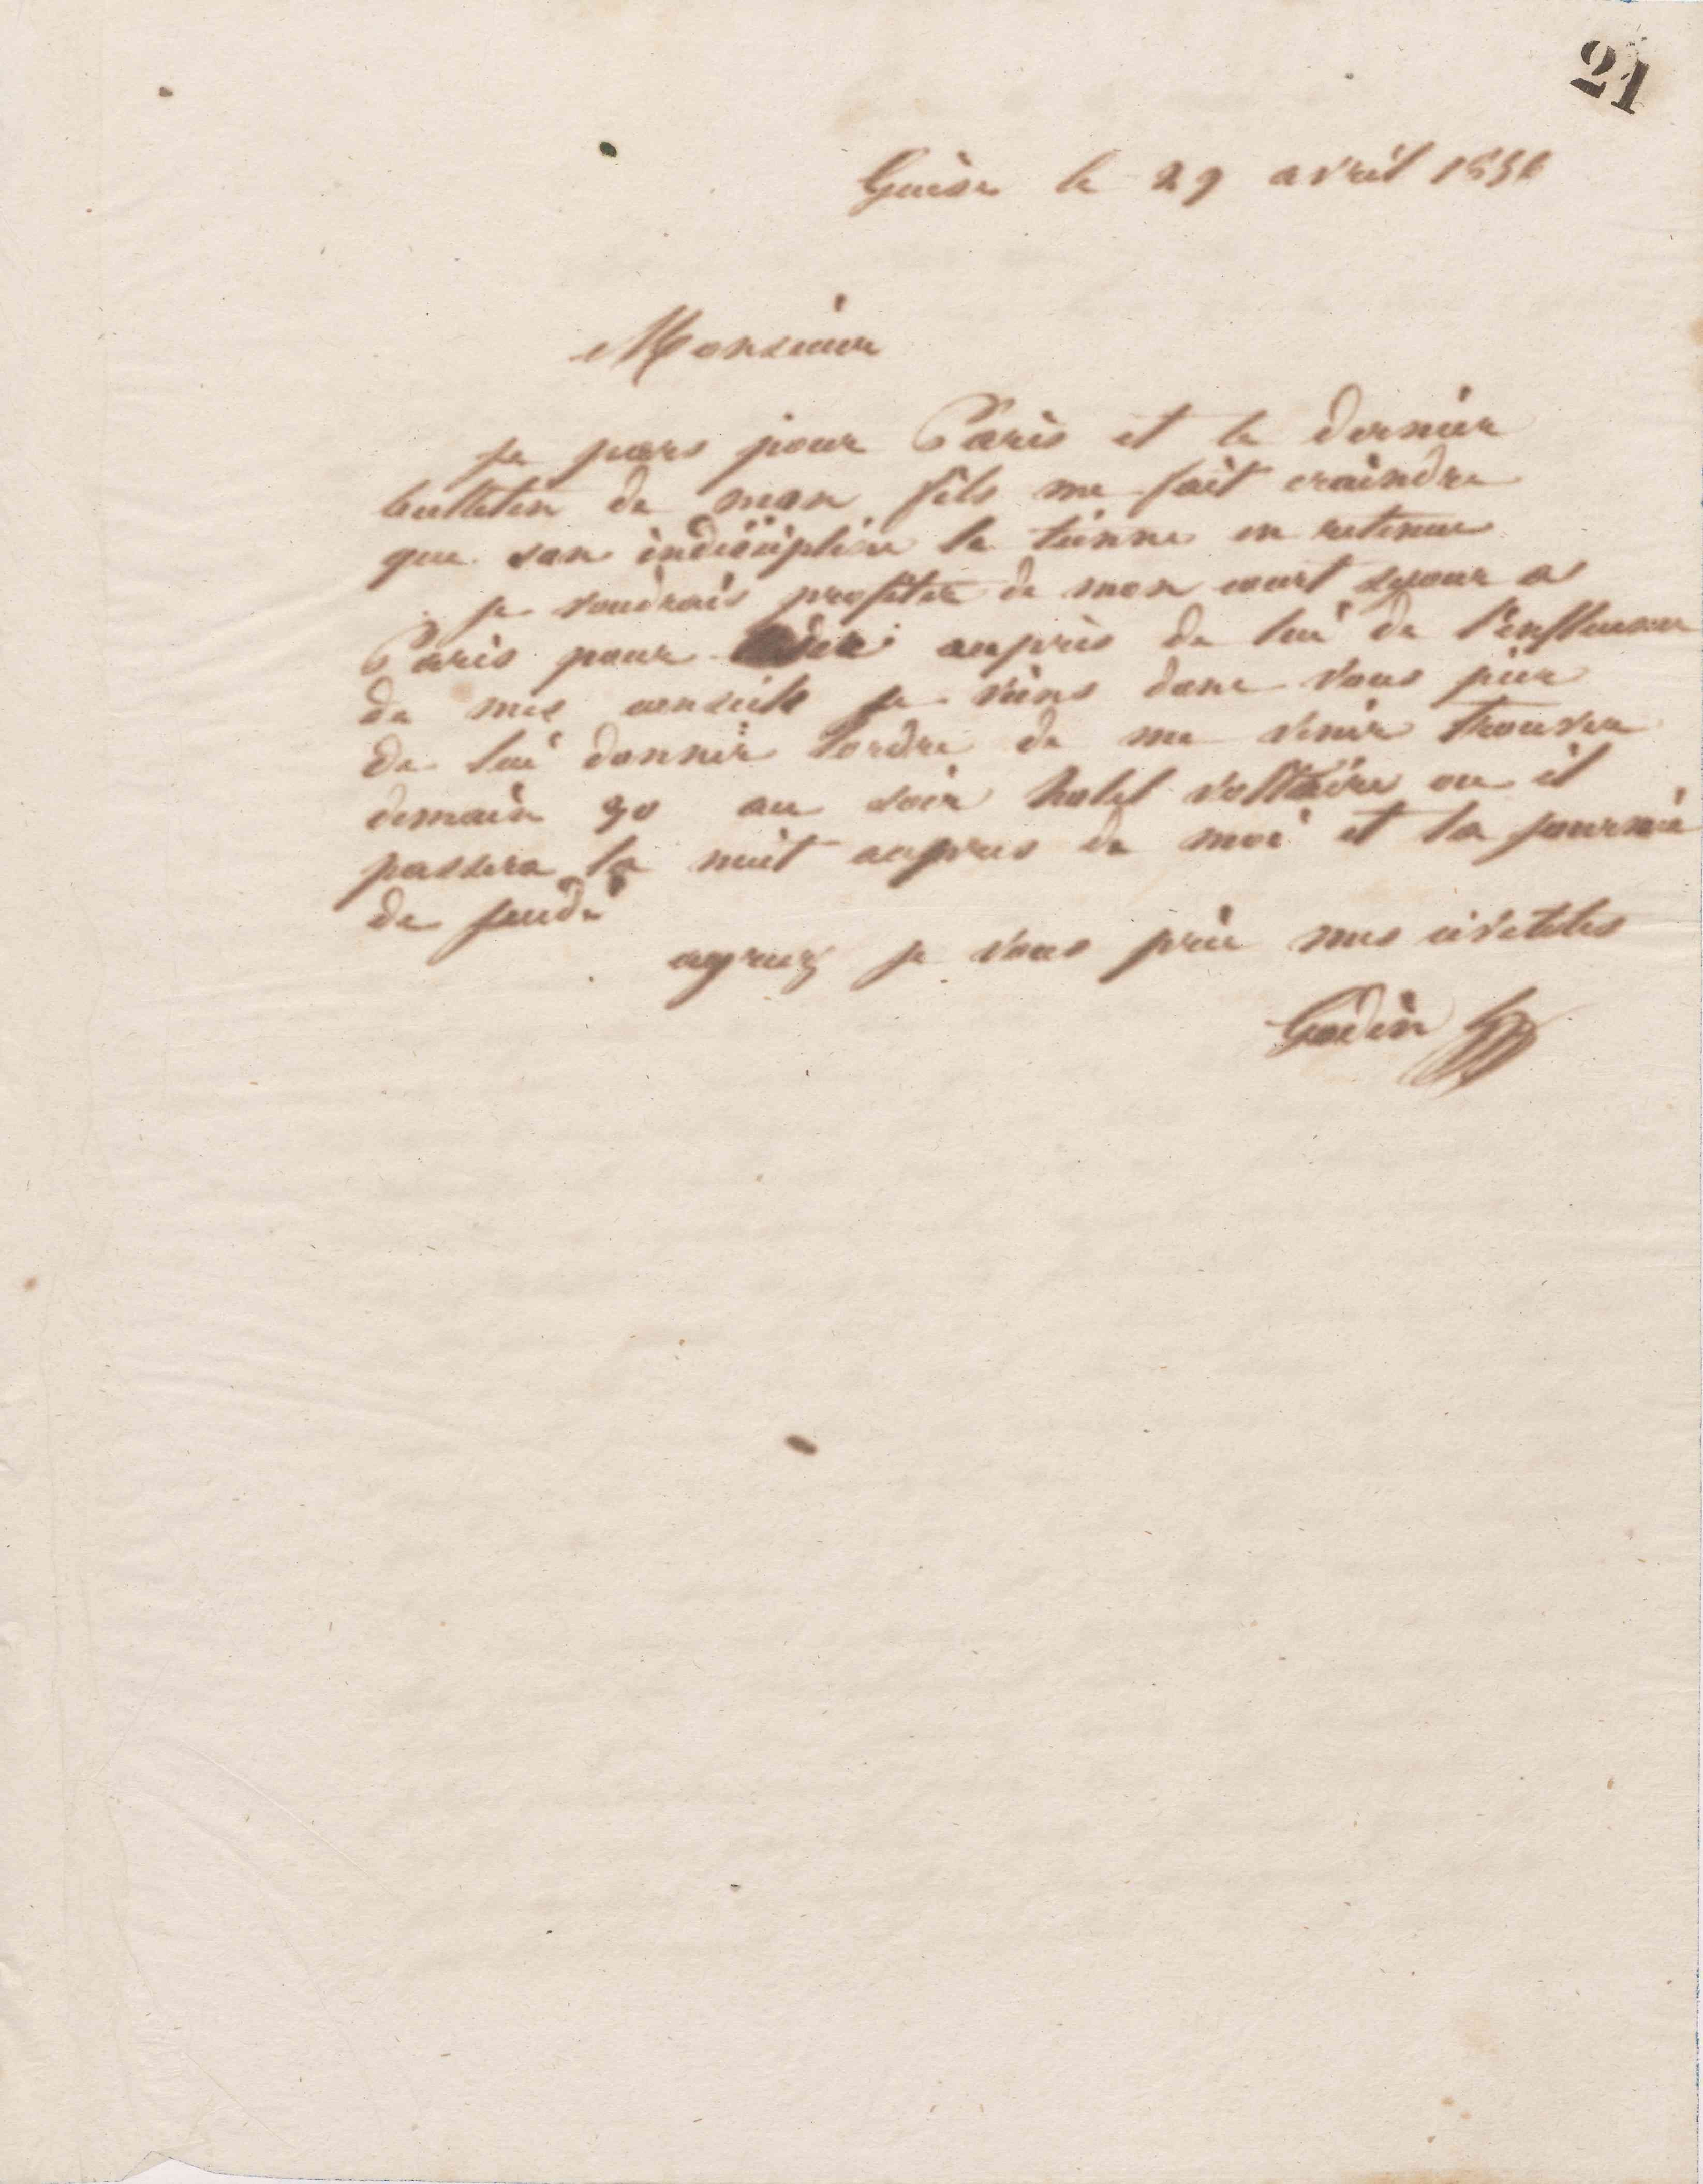 21
Guise le 29 avril 1856
Monsieur
je pars pour Paris et le dernier
bulletin de mon fils me fait craindre
que son indiscipline le tienne en retenue
je voudrais profiter de mon court sejour a
Paris pour user auprès de lui de l'influence
de mes conseils je viens donc vous prier
de lui donner lordre de me venir trouver
demain 30 au soir hotel voltaire ou il
passera la nuit aupres de moi et la journée
de jeudi
agreez je vous prie mes civilités
Godin